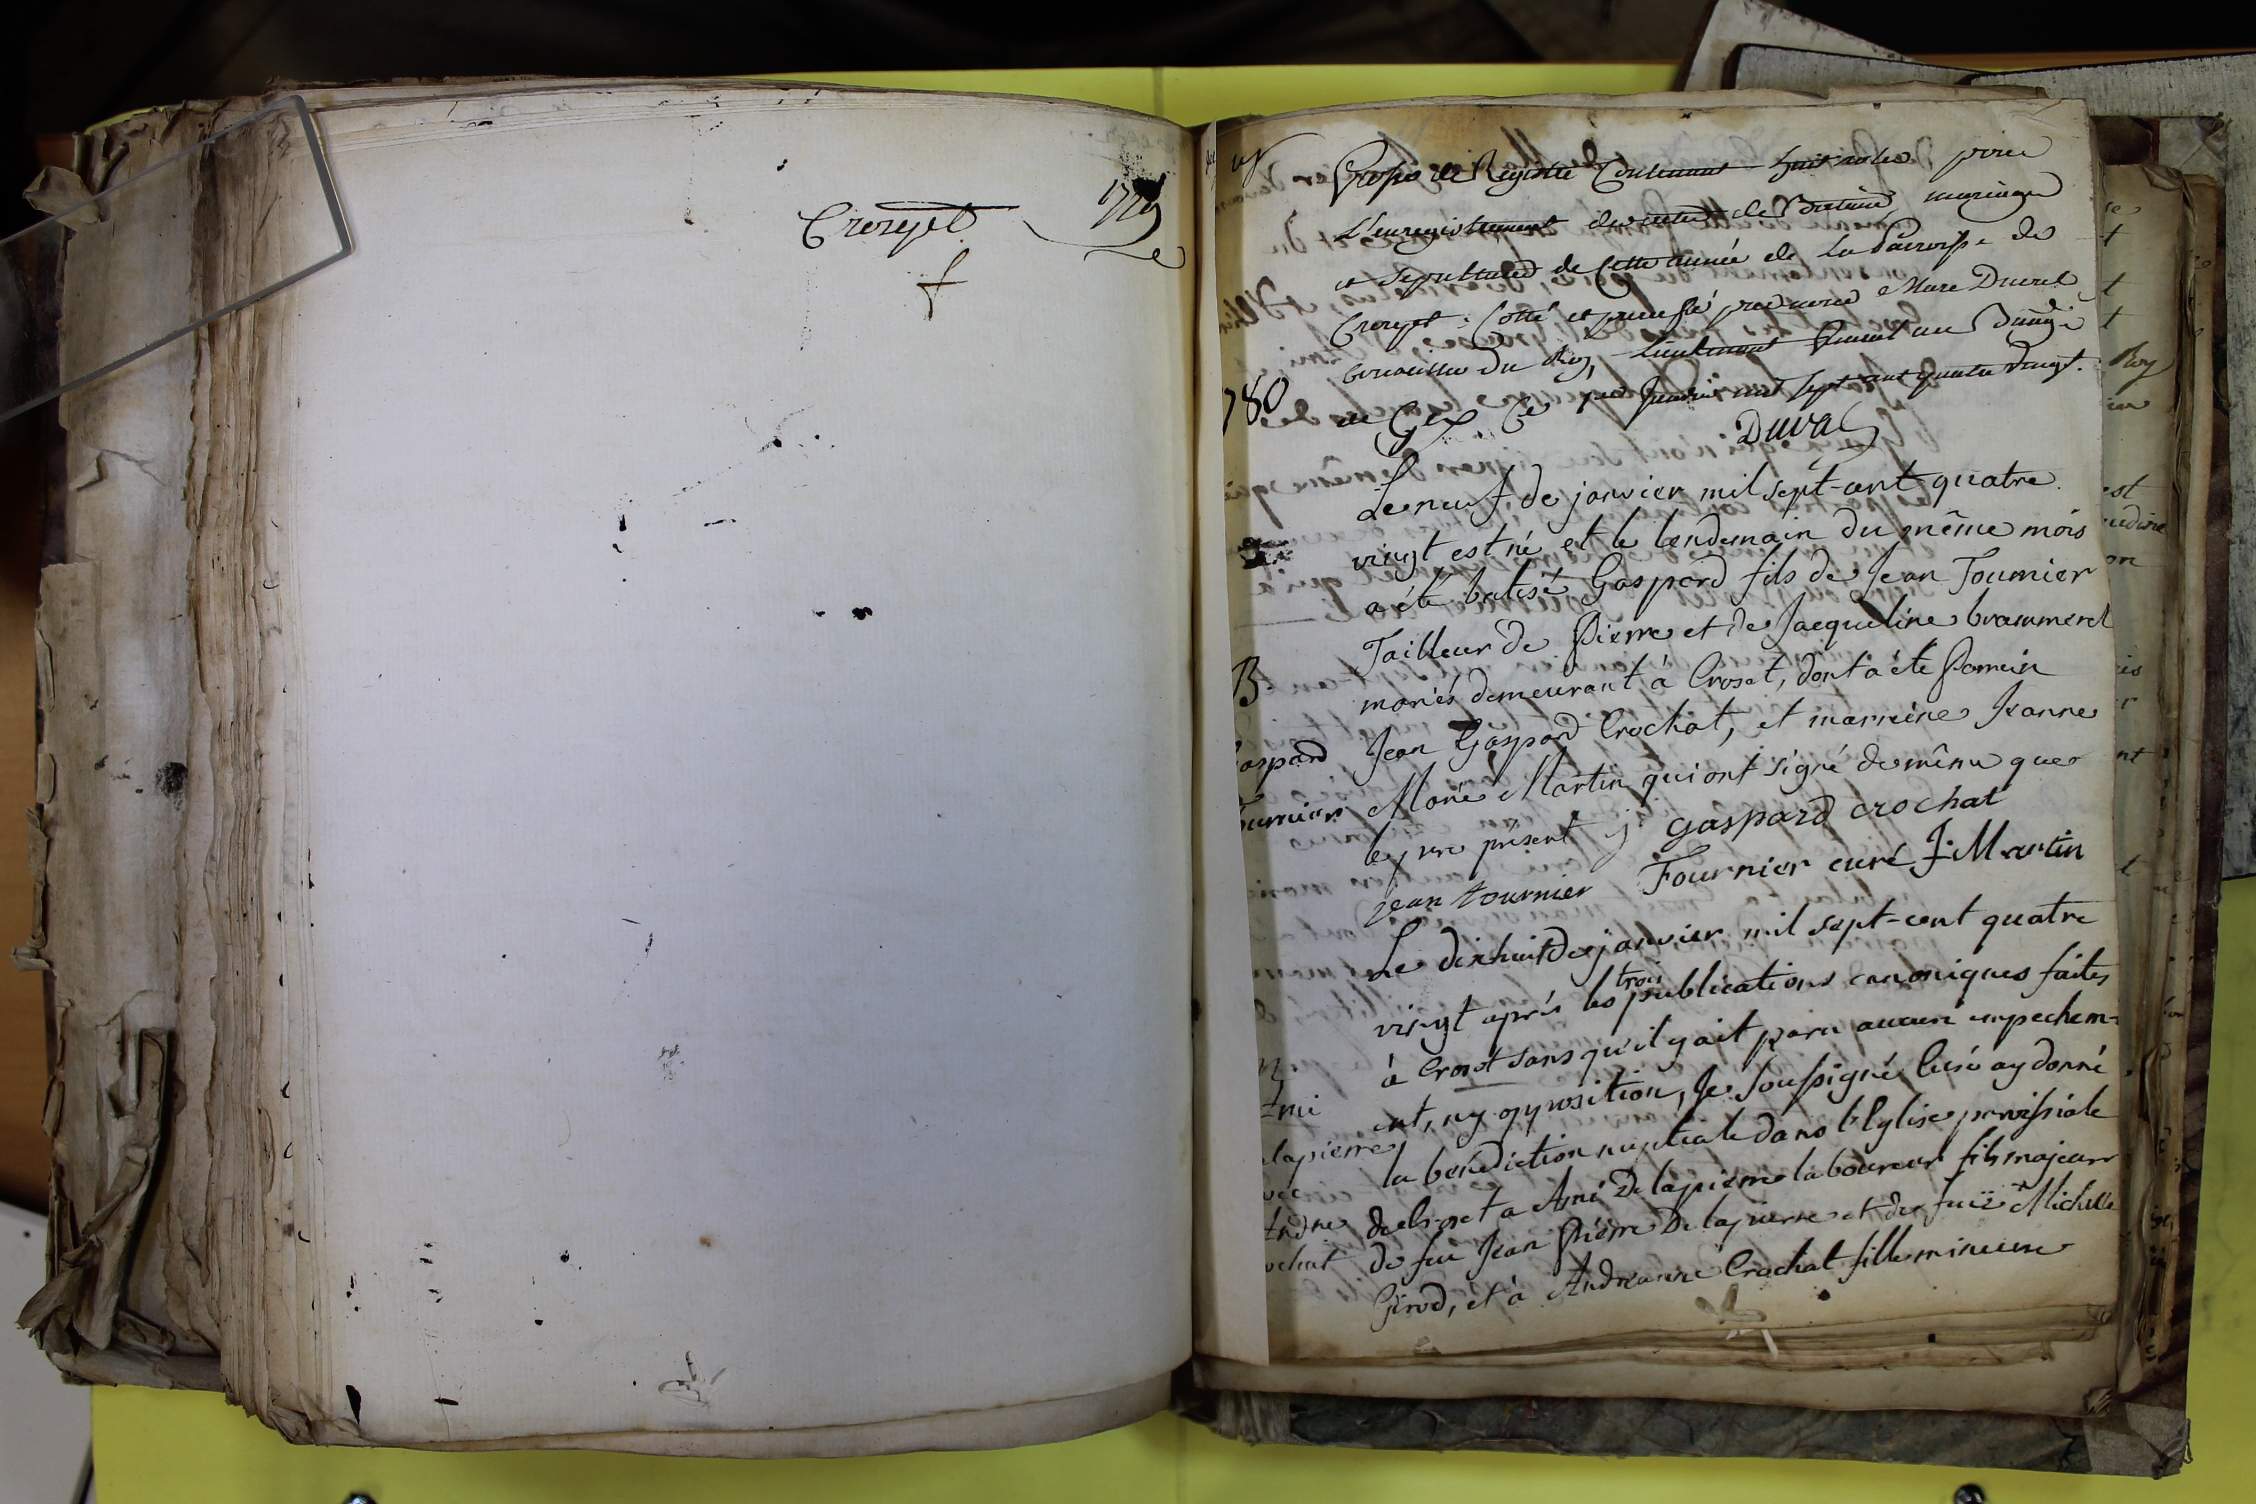 Crozet 1779
Registre Contenant huit roles pour
L'enregistrement des actes de Batêmes mariages
et sepultures de Cette année de la Paroisse de
Crozet. Cotté et paraffé par nous Marc Duval
Conseiller du Roy, Lieutenant au Bailliage
780
de Gex Ce Janvier mil sept cent quatre vingt.
Duval
Le neuf de janvier mil sept-cent quatre
vingt est né et le lendemain du même mois
a été batisé Gaspard fils de Jean Tournier
Tailleur de Pierre et de Jacqueline brammerel
B
mariés demeurant à Croset, dont a été Parrein
Gaspard
Jean Gaspard Crochat, et marreine Jeanne
Tournier
Marie Martin qui ont signé de même que
le pere présent j gaspard crochat
jean tournier Fournier curé J: Martin
Le dixhuit de janvier mil sept-cent quatre
vingt après les trois publications canoniques faites
à Croset sans qu'il y ait paru aucun empechem-
M
ent, ny opposition, Je soussigné Curé ay donné
Ami
la bénédiction nuptiale dans l'Eglise parroissiale
Delapierre
de Croset a Amé Delapierre laboureur fils majeur
avec
de feu Jean Pierre Delapierre et de fuë Michelle
Andne
Girod, et à Andréanne Crochat fille mineure
ochat